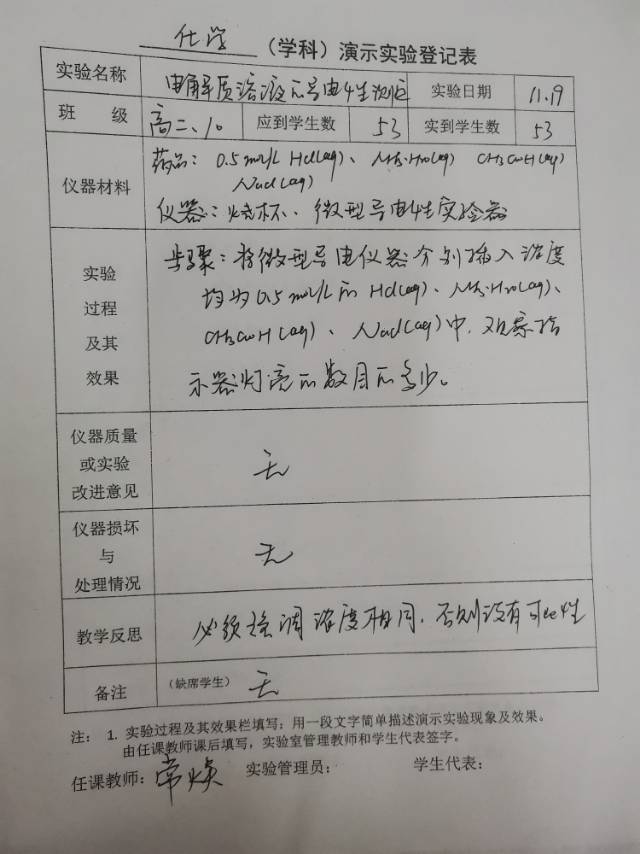 化学（学科）演示实验登记表
实验名称 电解质溶液导电性测定 实验日期 11.19
班 级 高二、10 应到学生数 53 实到学生数 53
仪器材料
药品：0.5mol/L HCl(aq)、NH₃·H₂O(aq) CH₃COOH(aq)
NaCl(aq)
仪器：烧杯、微型导电性实验器
实验
过程
及其
效果
步骤：将微型导电仪器分别插入浓度
均为0.5mol/L的HCl(aq)、NH₃·H₂O(aq)、
CH₃COOH(aq)、NaCl(aq)中，观察指
示器灯亮的数目的多少。
仪器质量
或实验
改进意见
无
仪器损坏
与
处理情况
无
教学反思 必须强调浓度相同，否则没有可比性
备注 （缺席学生） 无
注： 1. 实验过程及其效果栏填写：用一段文字简单描述演示实验现象及效果。
由任课教师课后填写，实验室管理教师和学生代表签字。
任课教师：常焕 实验管理员： 学生代表：